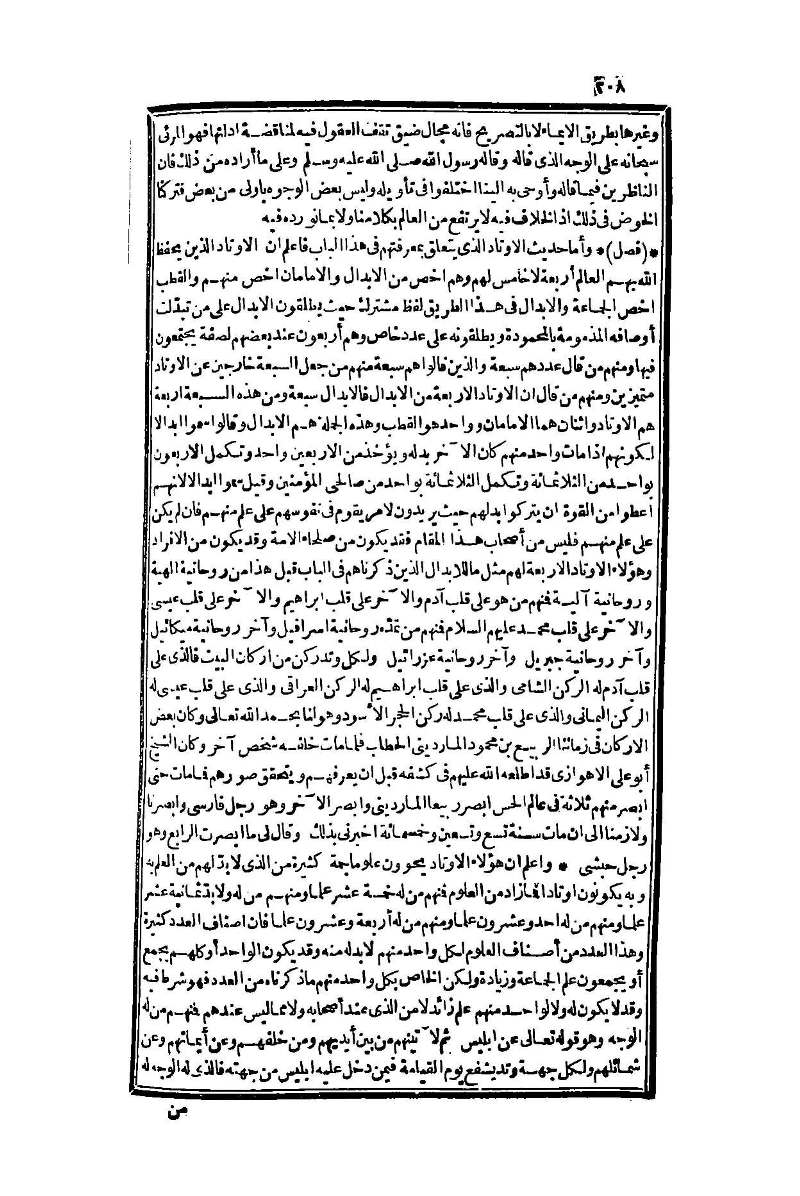 ٢٠٨
وغيرها بطريق الايماء لا بالتصريح فانه مجال ضيق تقف العقول فيه لمناقضة ادلتها فهو المرئى
سبحانه على الوجه الذى قاله وقاله رسول الله صلى الله عليه وسلم وعلى ما أراده من ذلك فان
الناظرين فيما قاله وأوحى به الينا اختلفوا فى تأويله وليس بعض الوجوه باولى من بعض فتركنا
الخوض فى ذلك اذ الخلاف فيه لا يرتفع من العالم بكلامنا ولا بما نورده فيه
* (فصل) * وأما حديث الاوتاد الذى يتعلق بمعرفتهم فى هذا الباب فاعلم ان الاوتاد الذين يحفظ
الله بهم العالم أربعة لا خامس لهم وهم اخص من الابدال والامامان اخص منهم والقطب
اخص الجماعة والابدال فى هذا الطريق لفظ مشترك حيث يطلقون الابدال على من تبدّلت
أوصافه المذمومة بالمحمودة ويطلقونه على عدد خاص وهم أربعون عند بعضهم لصفة يجتمعون
فيها ومنهم من قال عددهم سبعة والذين قالوا هم سبعة منهم من جعل السبعة خارجين عن الاوتاد
متميزين ومنهم من قال ان الاوتاد الاربعة من الابدال فالابدال سبعة ومن هذه السبعة اربعة
هم الاوتاد واثنان هما الامامان وواحد هو القطب وهذه الجملة هم الابدال وقالوا سموا ابدالا
لكونهم اذا مات واحد منهم كان الآخر بدله ويؤخذ من الاربعين واحد وتكمل الاربعون
بواحد من الثلاثمائة وتكمل الثلاثمائة بواحد من صالحى المؤمنين وقيل سموا ابدالا لانهم
أعطوا من القوة ان يتركوا بدلهم حيث يريدون لامر يقوم فى نفوسهم على علم منهم فان لم يكن
على علم منهم فليس من أصحاب هذا المقام فقد يكون من صلحاء الامة وقد يكون من الافراد
وهؤلاء الاوتاد الاربعة لهم مثل ما للابدال الذين ذكرناهم فى الباب قبل هذا من روحانية الهية
وروحانية آلية فنهم من هو على قلب آدم والآخر على قلب ابراهيم والآخر على قلب عيسى
والآخر على قلب محمد عليهم السلام فنهم من تمدّه روحانية اسرافيل وآخر روحانية ميكائيل
وآخر روحانية جبريل وآخر روحانية عزرائيل ولكل وتد ركن من اركان البيت فالذى على
قلب آدم له الركن الشامى والذى على قلب ابراهيم له الركن العراقى والذى على قلب عيسى له
الركن اليمانى والذى على قلب محمد له ركن الحجر الأسود وهو لنا بحمد الله تعالى وكان بعض
الاركان فى زماننا الربيع بن محمود الماردينى الحطاب فلما مات خلفه شخص آخر وكان الشيخ
أبو على الاهوازى قد اطلعه الله عليهم فى كشفه قبل ان يعرفهم ويتحقق صورهم فما مات حتى
ابصر منهم ثلاثة فى عالم الحس ابصر ربيعا الماردينى وابصر الآخر وهو رجل فارسى وابصرنا
ولازمنا الى ان مات سنة تسع وتسعين وخمسمائة اخبرنى بذلك وقال لى ما ابصرت الرابع وهو
رجل حبشى * واعلم ان هؤلاء الاوتاد يحوون علوما جمة كثيرة من الذى لا بدّ لهم من العلم به
وبه يكونون اوتادا فما زاد من العلوم فنهم من له خمسة عشر علما ومنهم من له ولا بدّ ثمانية عشر
علما ومنهم من له احد وعشرون علما ومنهم من له أربعة وعشرون علما فان اصناف العدد كثيرة
وهذا العدد من أصناف العلوم لكل واحد منهم لا بد له منه وقد يكون الواحد أو كلهم يجمع
أو يجمعون علم الجماعة وزيادة ولكن الخاص بكل واحد منهم ما ذكرناه من العدد فهو شرط فيه
وقد لا يكون له ولا لواحد منهم علم زائد لا من الذى عند أصحابه ولا مما ليس عندهم فنهم من له
الوجه وهو قوله تعالى عن ابليس ثم لآتينهم من بين أيديهم ومن خلفهم وعن أيمانهم وعن
شمائلهم ولكل جهة وتد يشفع يوم القيامة فيمن دخل عليه ابليس من جهته فالذى له الوجه له
من